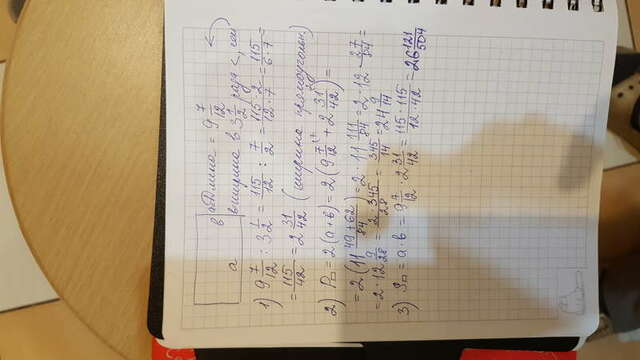 a Длина = 9 7/12
в
а
в ширина в 3 1/2 раза <, чем
1) 9 7/12 : 3 1/2 = 115/12 : 7/2 = 115·2/12·7 = 115/6·7 =
= 115/42 = 2 31/42 (ширина прямоугольн.)
2) P▭ = 2(а+в) = 2(9 7/12 + 2 31/42) =
= 2(11 49+62/84) = 2·11 111/84 = 2·12 27/84 =
= 2·12 9/28 = 2·345/28 = 345/14 = 24 9/14
3) S▭ = а·в = 9 7/12 · 2 31/42 = 115·115/12·42 = 26 121/504